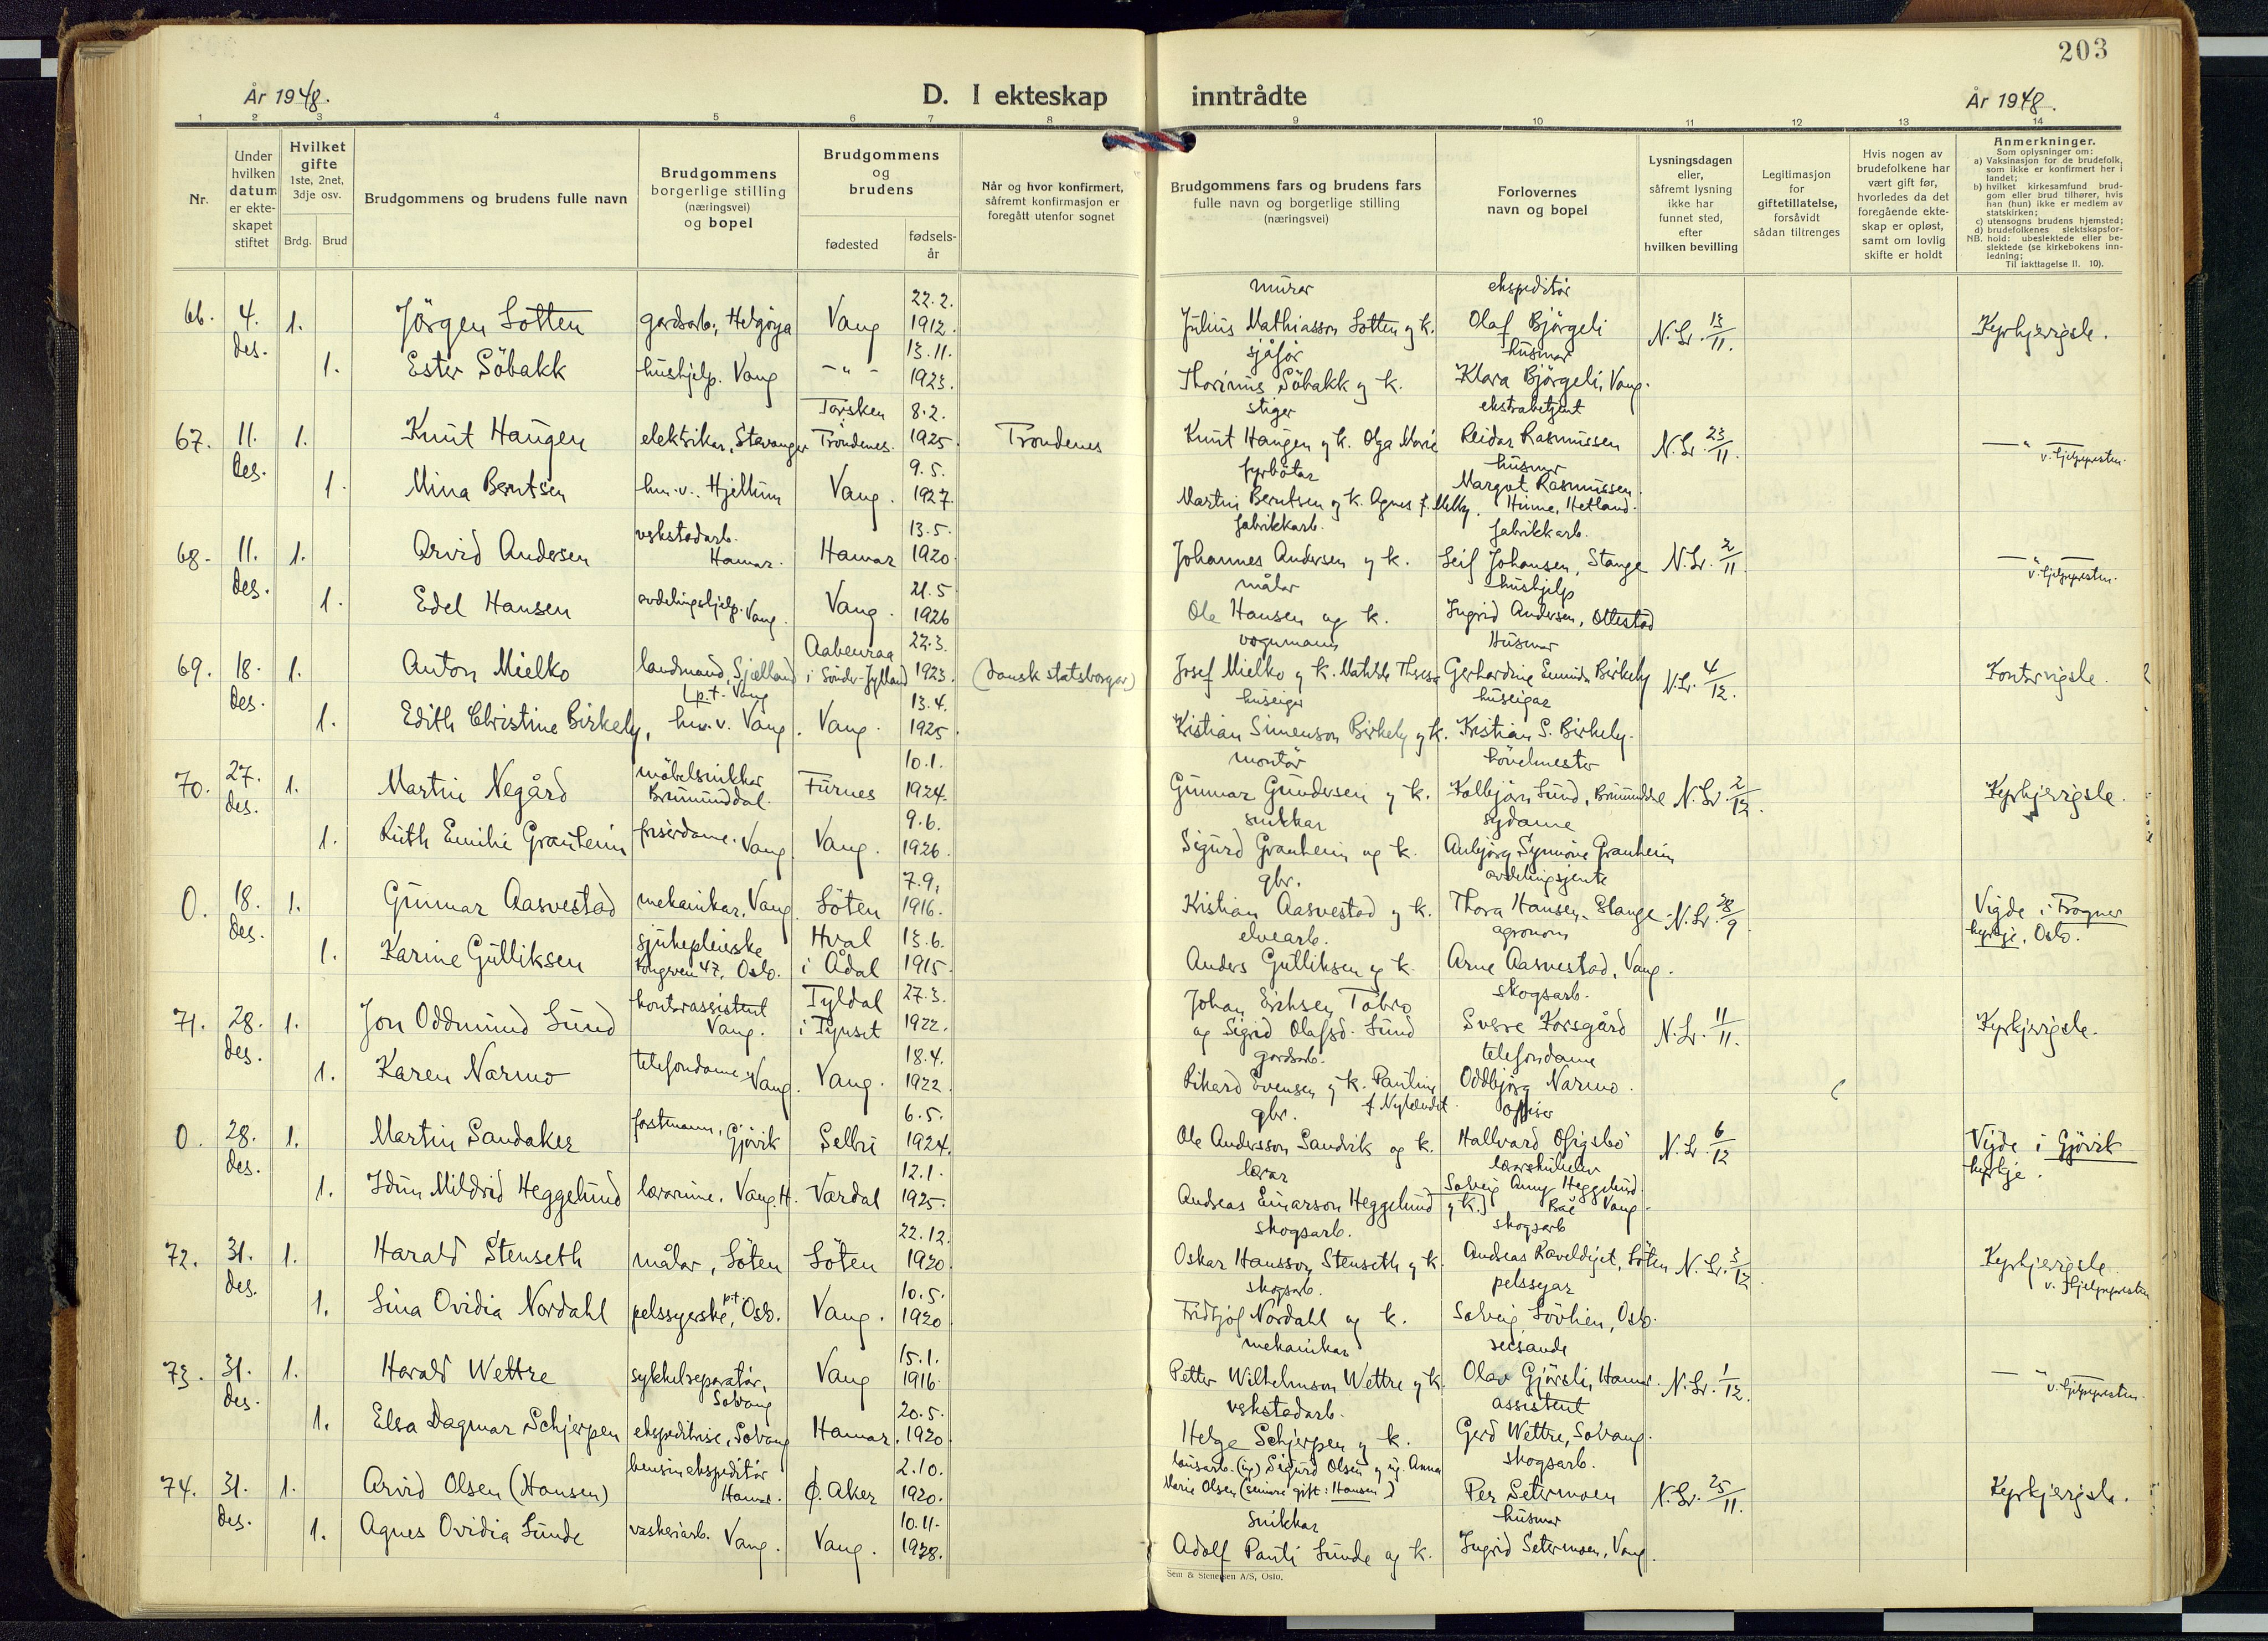 203
År 1948.
D. I ekteskap inntrådte
År 1948.
1 2 3 4 5 6 7 8 9 10 11 12 13 14
Nr.
Under hvilken datum er ekteskapet stiftet
Hvilket gifte 1ste, 2net, 3dje osv.
Brdg. Brud
Brudgommens og brudens fulle navn
Brudgommens borgerlige stilling (næringsvei) og bopel
Brudgommens og brudens
fødested
fødselsår
Når og hvor konfirmert, såfremt konfirmasjon er foregått utenfor sognet
Brudgommens fars og brudens fars fulle navn og borgerlige stilling (næringsvei)
Forlovernes navn og bopel
Lysningsdagen eller, såfremt lysning ikke har funnet sted, efter hvilken bevilling
Legitimasjon for giftetillatelse, forsåvidt sådan tiltrenges
Hvis nogen av brudefolkene har vært gift før, hvorledes da det foregående ekteskap er opløst, samt om lovlig skifte er holdt
Anmerkninger.
Som oplysninger om:
a) Vaksinasjon for de brudefolk, som ikke er konfirmert her i landet;
b) hvilket kirkesamfund brudgom eller brud tilhører, hvis han (hun) ikke er medlem av statskirken;
c) utensogns brudens hjemsted;
d) brudefolkenes slektskapsforhold: ubeslektede eller beslektede (se kirkebokens innledning;
NB.
Til iakttagelse II. 10).
murer ekspeditör
66. 4. des. 1. Jörgen Sotten gardsarb, Helgöya Vang 22.2. 1912. Julius Mathiasson Sotten og k. Olaf Björgeli N. Lr. 13/11. Kyrkjevigsle.
sjåför husmor
1. Ester Söbakk hushjelp. Vang - " - 13.11. 1923. Söbakk og k. Klara Björgeli, Vang.
stiger ekstrabetjent
67. 11. des. 1. Knut Haugen elektrikar, Stavanger Torsken Trondenes. 8.2. 1925. Trondenes Knut Haugen og k. Olga Marie Reidar Rasmussen N. Lr. 23/11. — " — v. hjelpepresten.
fyrbötar husmor
1. Mina Berntsen hm. v. Hjellum Vang. 9.5. 1927. Martin Berntsen og k. Agnes f. Melby. Margot Rasmussen. Hinna, Hetland.
fabrikkarb. fabrikkarb.
68. 11. des. 1. Arvid Andersen verkstadarb. Hamar. Hamar 13.5. 1920. Johannes Andersen og k. Leif Johansen, Stange N. Lr. 2/11. — " — v. hjelpepresten.
målar hushjelp
1. Edel Hansen avdelingshjelp. Vang. Vang. 21.5 1926 Ole Hansen og k. Ingrid Andersen, Ottestad
vognmann Husmor
69. 18. des. 1. Anton Mielko landmand, Sjælland p.t. Vang Aabenraa i Sönder-Jylland 22.3. 1923. (dansk statsborger) Josef Mielko og k. Matilde Theresa Gerhardine Birkely N. Lr. 4/12. Kontorvigsle.
huseigar huseigar
1. Edith Christine Birkely, hm. v. Vang. Vang. 13.4. 1925. Kristian Simenson Birkely og k. Kristian S. Birkely.
montör hövelmester
70. 27. des. 1. Martin Negård möbelsnikkar Brumunddal. Furnes 10.1. 1924. Gunnar Gundersen og k. Kolbjörn Lund, Brumunddal N. Lr. 2/12. Kyrkjevigsle.
snikkar sydame
1. Ruth Emilie Granheim frisördame. Vang Vang. 9.6. 1926. Sigurd Granheim og k. Anbjörg Synnöve Granheim
gbr. avdelingsjente
0. 18. des. 1. Gunnar Aasvestad mekanikar, Vang. Löten 7.9. 1916. Kristian Aasvestad og k. Thora Hansen, Stange N. Lr. 28/9 Vigde i Frogner kyrkje, Oslo.
elvearb. agronom
1. Karine Gulliksen sjukepleierske Kongsveien 47, Oslo. Hval i Ådal 13.6. 1915. Anders Gulliksen og k. Arne Aasvestad, Vang.
skogsarb.
71. 28. des. 1. Jon Oddmund Lund kontorassistent Vang. Tyldal i Tynset 27.3. 1922. Johan Eriksen Tabro og Sigrid Olafsd. Lund Sverre Korsgård N. Lr. 11/11. Kyrkjevigsle.
gardsarb. telefondame
1. Karen Narmo telefondame, Vang. Vang. 18.4. 1922. Rikard Svensen og k. Pauline f. Nylændet. Oddbjörg Narmo.
gbr. offiser
0. 28. des. 1. Martin Sandaker forstmann, Gjövik Selbu 6.5. 1924. Ole Andersson Sandvik og k. Hallvard N. Lr. 6/12 Vigde i Gjövik kyrkje.
lærar lærarskuleelev
1. Idun Mildrid Heggelund lærarinne. Vang. H. Vardal 12.1. 1925. Andreas Einarson Heggelund og k. Solveig Anny Heggelund. Vang.
skogsarb. skogsarb
72. 31. des. 1. Harald Stenseth målar, Löten Löten 22.12. 1920. Oskar Hansson Stenseth og k. Andreas Raveldijet, Löten N. Lr. 3/12. Kyrkjevigsle. v. Hjelpepresten
skogsarb. pelssyar
1. Lina Ovidia Nordahl pelssyerske, p.t. Oslo. Vang. 10.5. 1920. Fridtjof Nordahl og k. Solveig Lövlien, Oslo.
mekanikar reisande
73. 31. des. 1. Harald Wettre sykkelreparatör, Solvang Vang 15.1. 1916. Petter Wilhelmson Wettre og k. Olav Gjörsli, Hamar. N. Lr. 1/12. — " — v. hjelpepresten.
verkstadarb. assistent
1. Elsa Dagmar Schjerpen ekspeditrise, Solvang Hamar. 20.5. 1920. Helge Schjerpen og k. Gerd Wettre, Solvang.
skogsarb.
74. 31. des. 1. Arvid Olsen (Hansen) bensinekspeditör Hamar. Ö. Aker 2.10. 1920. lausarb. (ug) Sigurd Olsen og ug. Anna Marie Olsen (seinare gift: Hansen) Per Setermoen N. Lr. 25/11. Kyrkjevigsle.
snikkar husmor
1. Agnes Ovidia Lunde vaskeriarb. Vang. Vang. 10.11. 1928. Adolf Pauli Lunde og k. Ingrid Setermoen, Vang.
Sem & Stenersen A/S, Oslo.